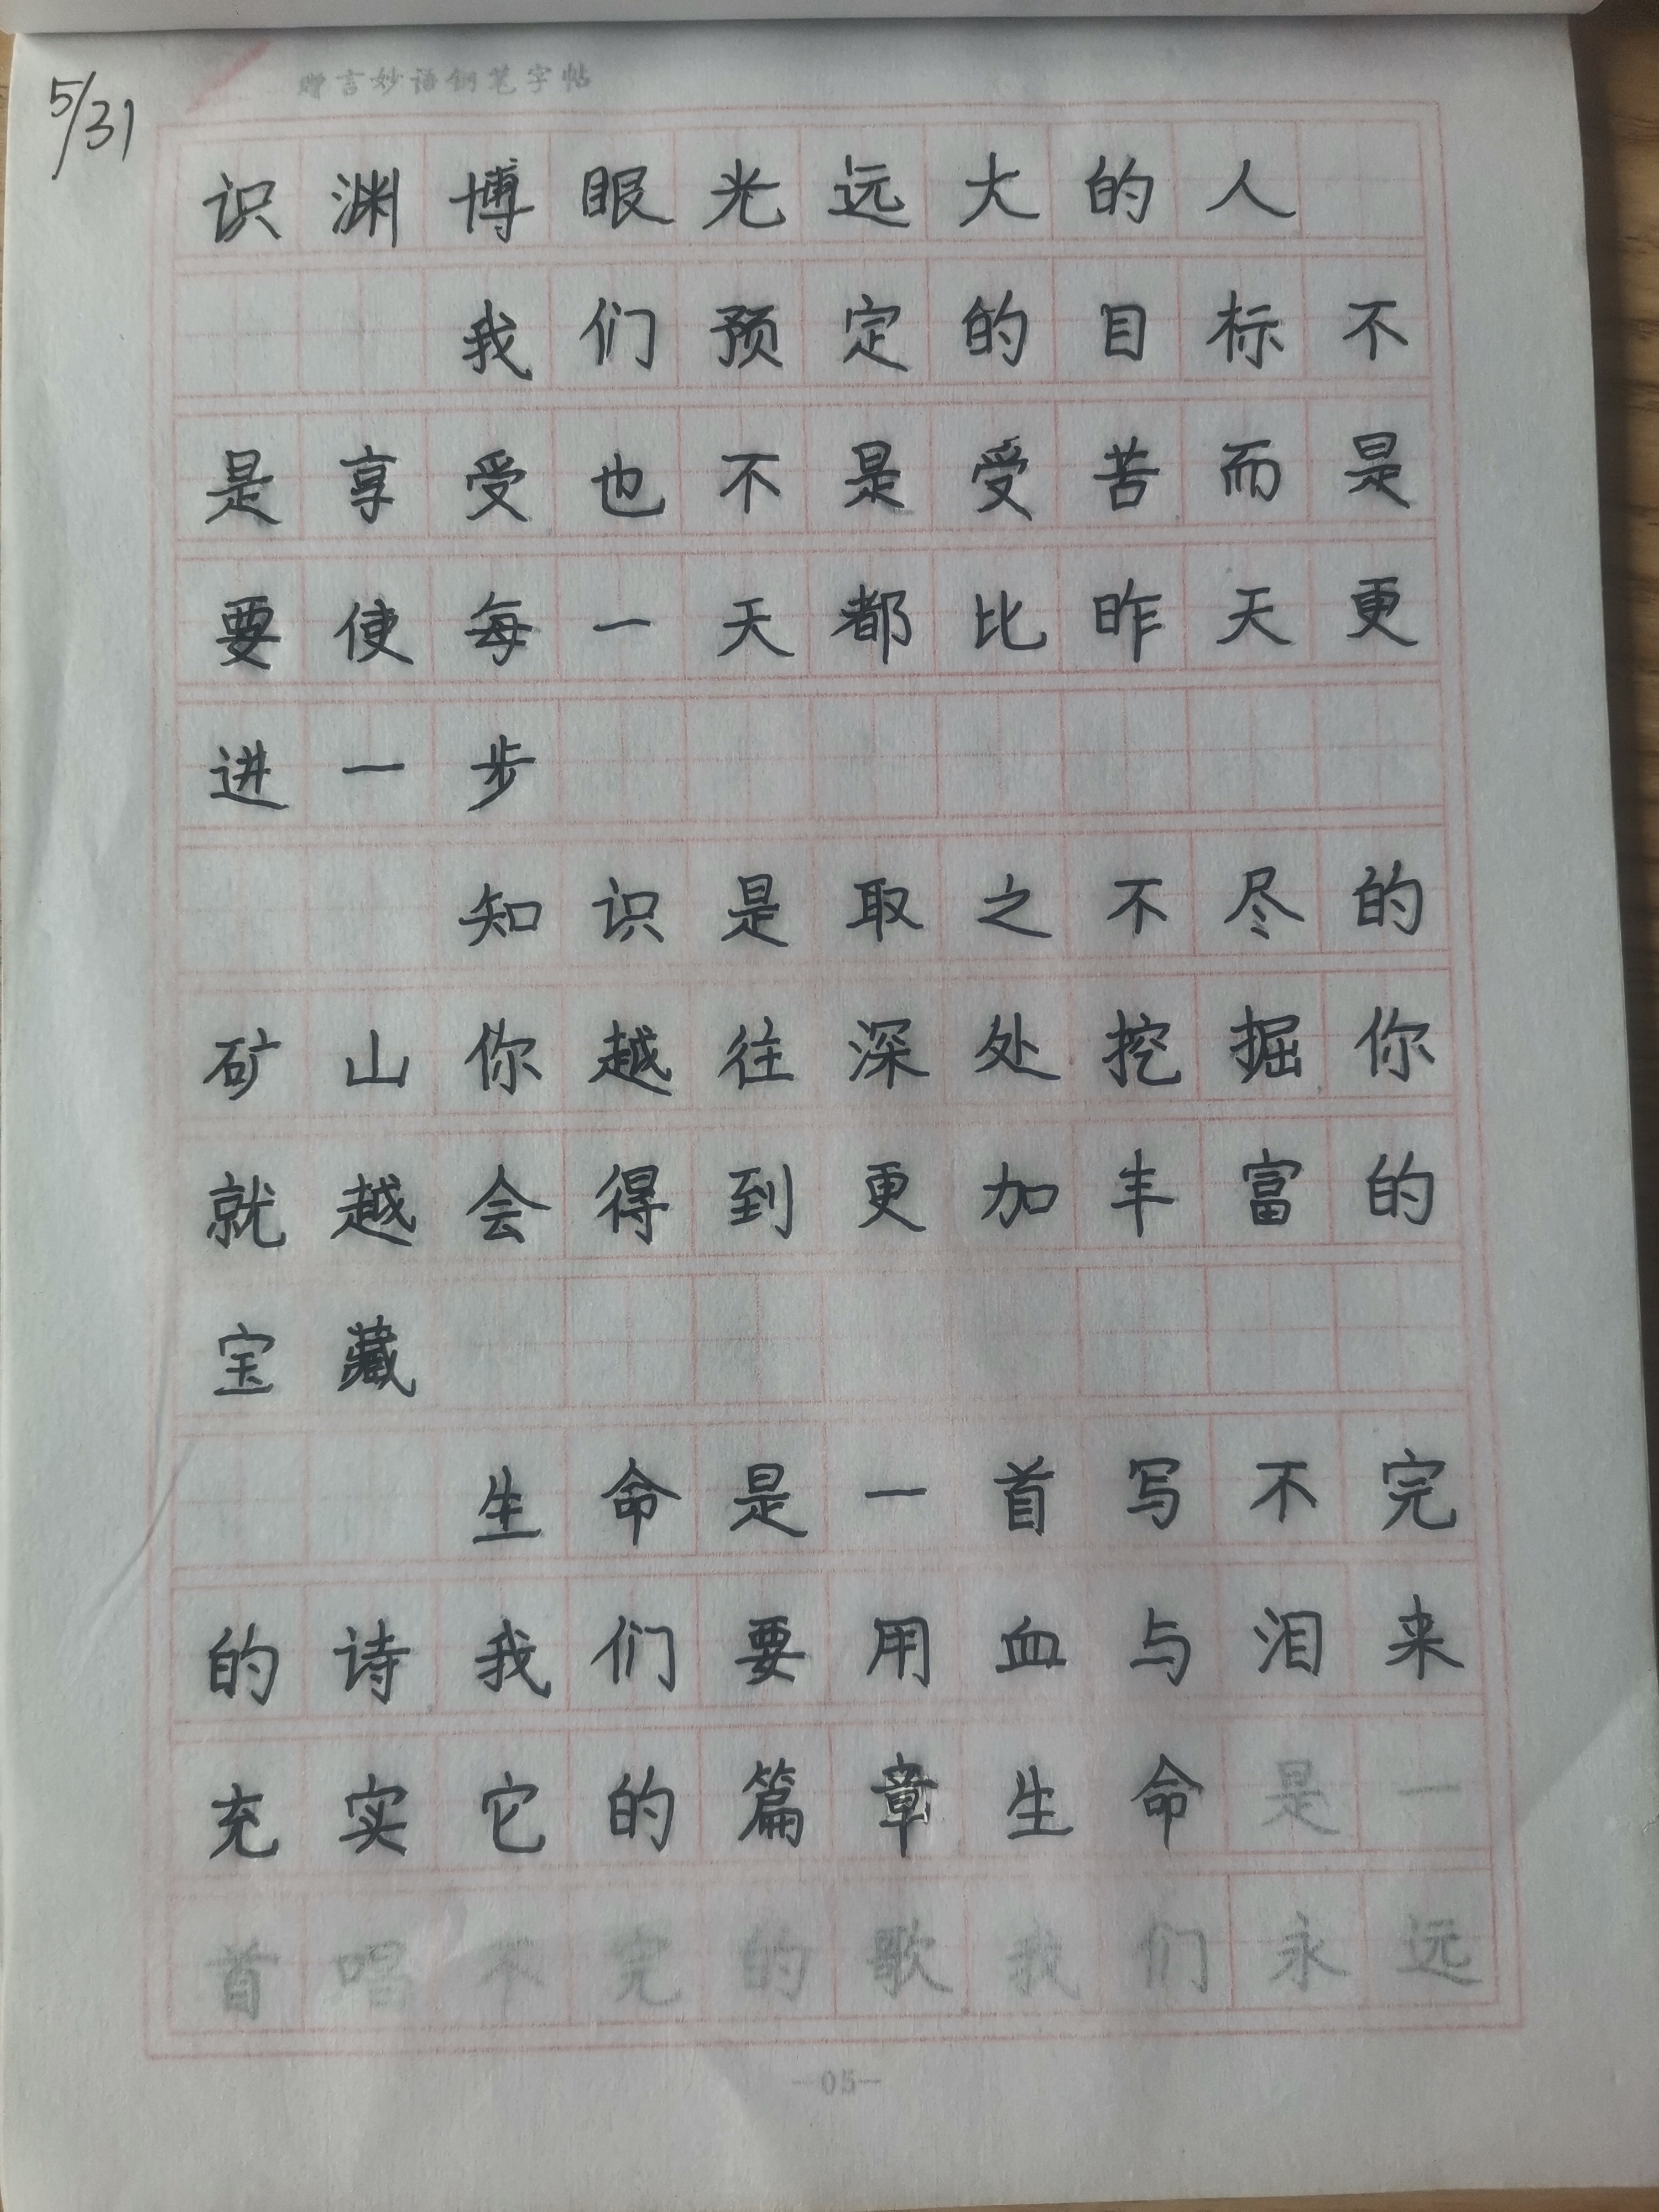 5/31
赠言妙语钢笔字帖
识渊博眼光远大的人
我们预定的目标不
是享受也不是受苦而是
要使每一天都比昨天更
进一步
知识是取之不尽的
矿山你越往深处挖掘你
就越会得到更加丰富的
宝藏
生命是一首写不完
的诗我们要用血与泪来
充实它的篇章生命是一
首唱不完的歌我们永远
—05—